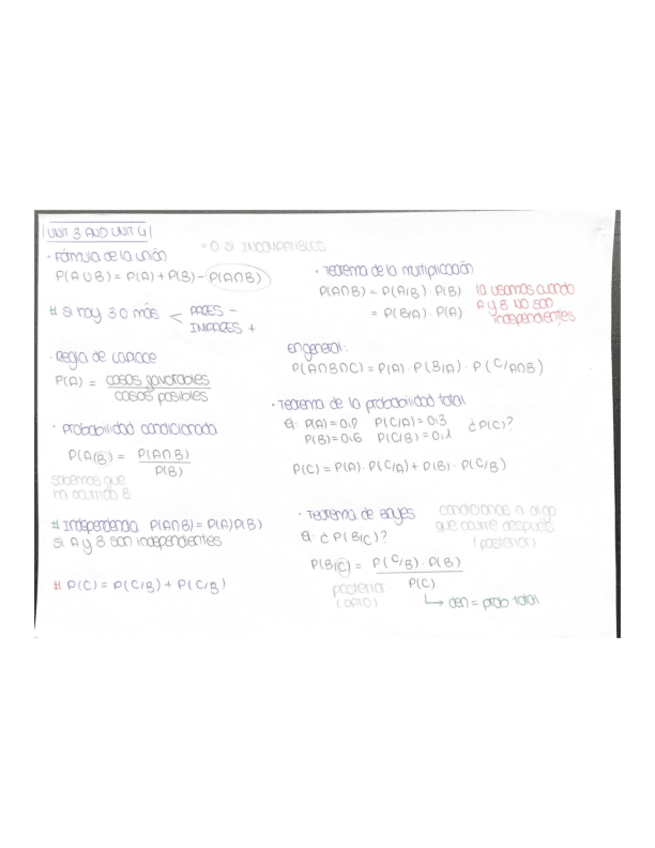 UNIT 3 AND UNIT 4
= 0 SI INCOMPATIBLES
· Fórmula de la unión
P(A∪B) = P(A) + P(B) - P(A∩B)
# si hay 3 o más < PARES -
IMPARES +
· Regla de Laplace
P(A) = casos favorables
casos posibles
· Probabilidad condicionada
P(A/B) = P(A∩B)
P(B)
sabemos que
ha ocurrido B
# Independencia P(A∩B) = P(A)P(B)
si A y B son independientes
# P(C) = P(C/B) + P(C/B)
· Teorema de la multiplicación
P(A∩B) = P(A/B) · P(B)
= P(B/A) · P(A)
la usamos cuando
A y B NO son
independientes
En general:
P(A∩B∩C) = P(A) · P(B/A) · P(C/A∩B)
· Teorema de la probabilidad total
P(C/A) = 0,3 ¿P(C)?
P(B) = 0,6
P(C) = P(A) · P(C/A) + P(B) · P(C/B)
· Teorema de Bayes
condicionamos a algo
que ocurre después
(posterior)
¿P(B/C)?
P(B/C) = P(C/B) · P(B)
P(C)
posterior
(dato)
→ den = prob total